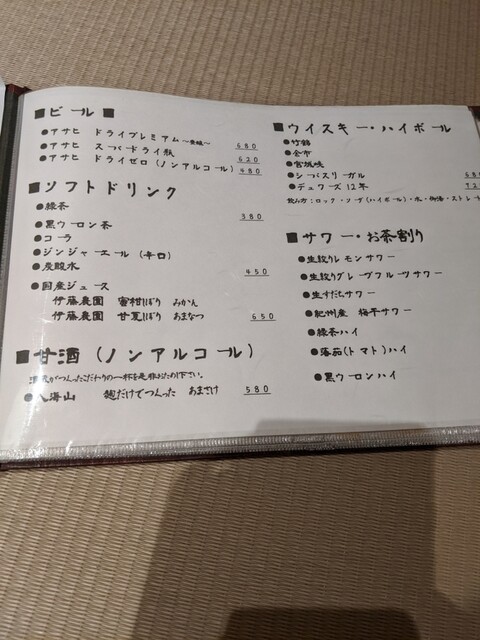 ■ビール■
●アサヒ ドライプレミアム～豊醸～ 680
●アサヒ スーパードライ瓶 620
●アサヒ ドライゼロ(ノンアルコール) 480
■ソフトドリンク
●緑茶
●黒ウーロン茶 380
●コーラ
●ジンジャーエール(辛口)
●炭酸水 450
●国産ジュース
伊藤農園 蜜柑しぼり みかん
伊藤農園 甘夏しぼり あまなつ 650
■甘酒(ノンアルコール)
がつくったこだわりの一杯を是非お試め下さい。
●八海山 麹だけでつくった あまさけ 580
■ウイスキー・ハイボール
●竹鶴
●余市
●宮城峡
●シーバスリーガル 680
●デュワーズ12年
飲み方:ロック・ソーダ(ハイボール)・水・御湯・ストレート
■サワー・お茶割り
●生絞りレモンサワー
●生絞りグレープフルーツサワー
●生すだちサワー
●紀州産 梅干サワー
●緑茶ハイ
●蕃茄(トマト)ハイ
●黒ウーロンハイ